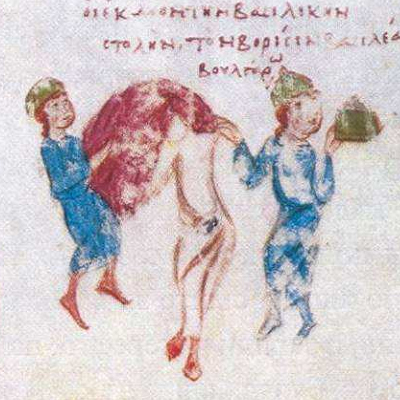 οἱ ἐκδύοντ τὴν βασιλικὴν
στολὴν, τὸν βορίσην βασιλέα
βουλγάρω